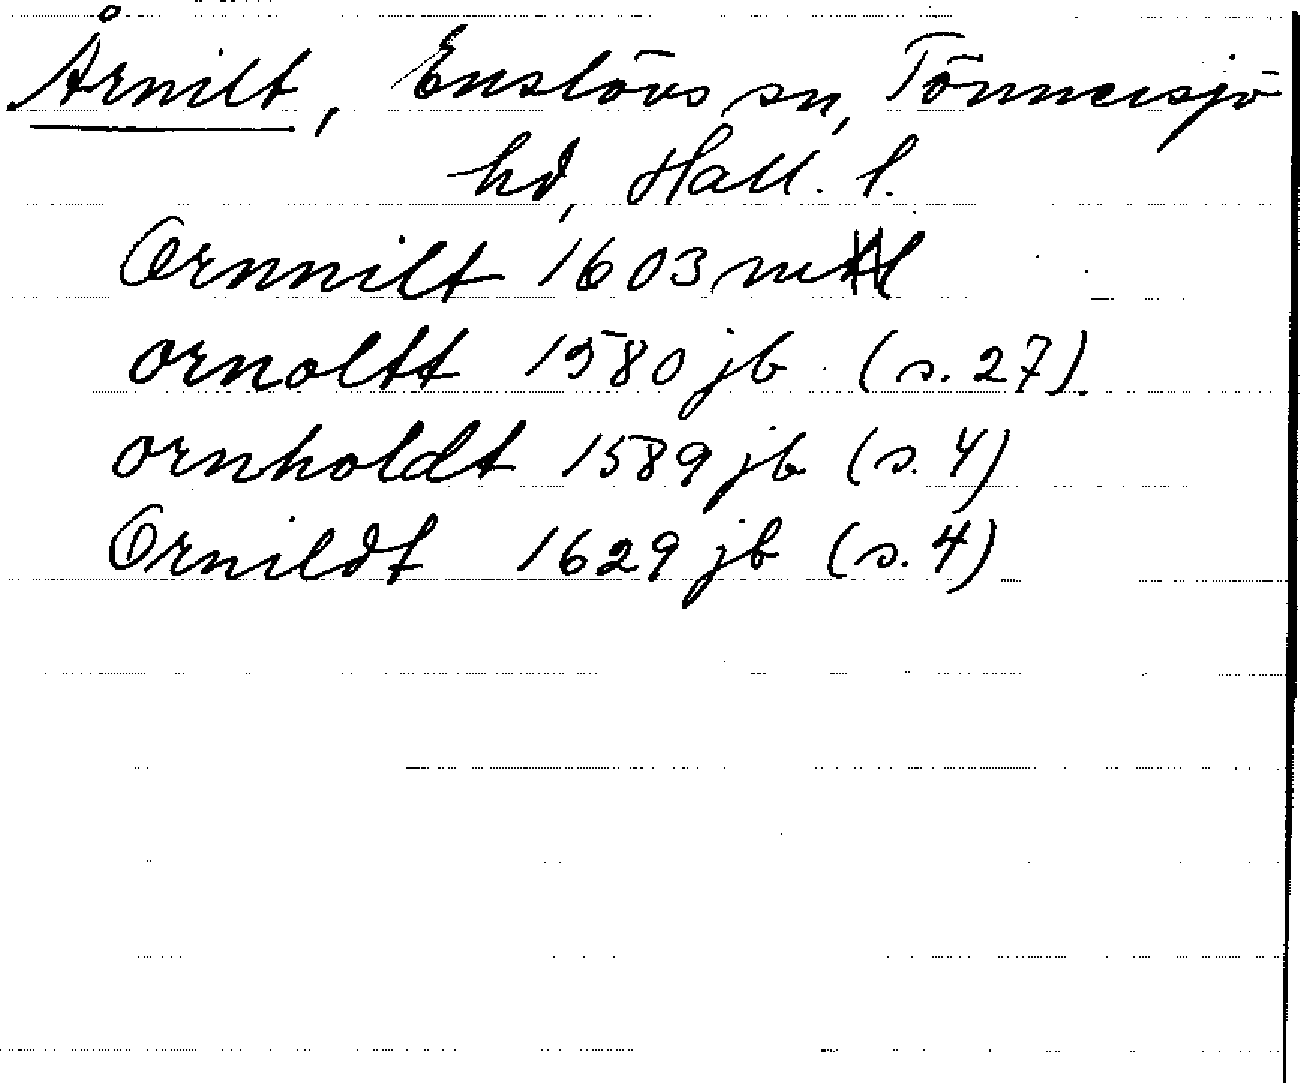 Årnilt, Enslövs sn, Tönnersjö
hd, Hall. l.
Ornnilt 1603 mtl
ornoltt 1580 jb (s. 27).
ornholdt 1589 jb (s. 4)
Ornildt 1629 jb (s. 4)